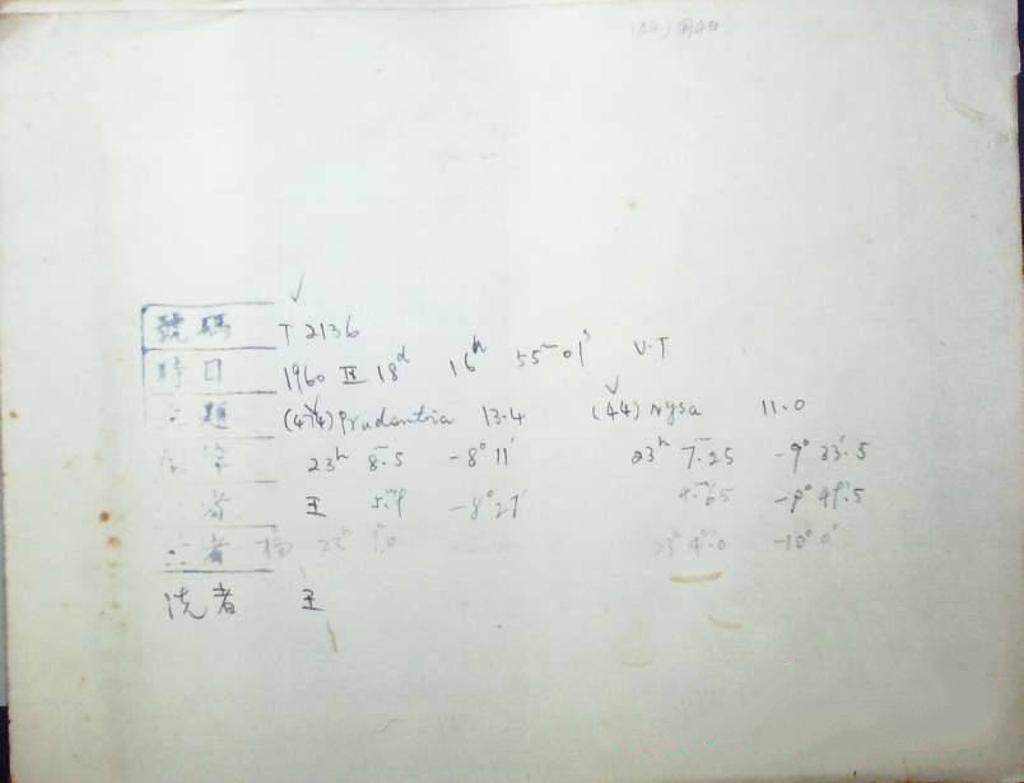 號碼 T 2136
時日 1960 IX 18ᵈ 16ʰ 55ᵐ 01ˢ U.T
題 (474) Prudentia 13.4 (44) Nysa 11.0
23ʰ 8ᵐ.5 -8°11′ 23ʰ 7ᵐ.25 -9°33′.5
王 5ᵐ.9 -8°27′ 4ᵐ.65 -9°49′.5
者 23ʰ 23ʰ 4ᵐ.0 -10°0′
洗者 王